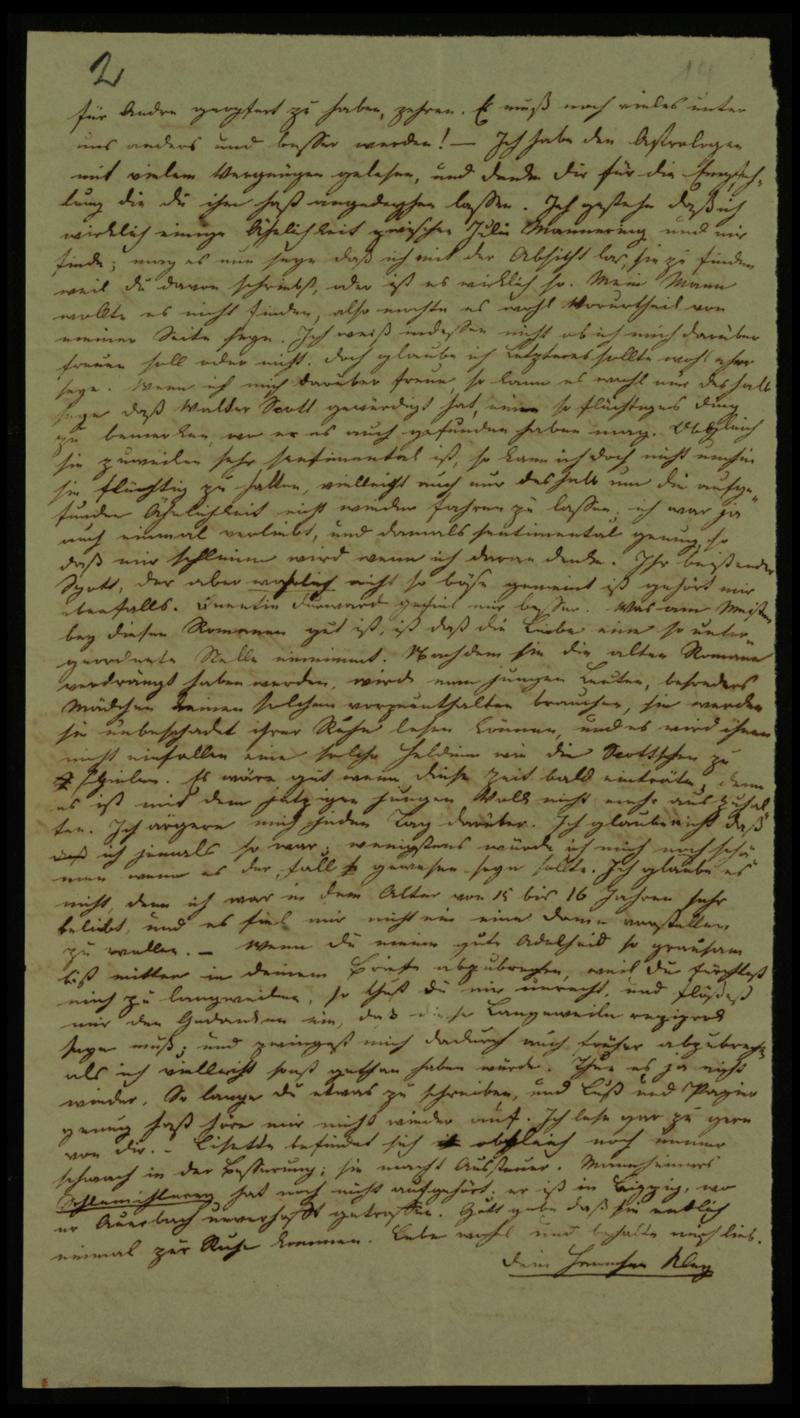 2
14
für Andre geopfert zu haben, zehren. Es muß noch vieles unter
uns anders und besser werden! — Ich habe den Astrologen
mit vielem Vergnügen gelesen, und danke dir für die Empfeh-
lung die du ihm hast angedeyhen lassen. Ich gestehe daß ich
wirklich einige Ähnlichkeit zwischen Julie Mannering und mir
finde; mag es nun seyn daß ich mit der Absicht las, sie zu finden
weil du davon schriebst, oder ist es wirklich so. Mein Mann
wollte es nicht finden, also mochte es wohl Vorurtheil von
meiner Seite seyn. Ich weiß indessen nicht ob ich mich darüber
freuen soll oder nicht. Doch glaube ich Letzteres sollte wohl eher
seyn. Wenn ich mich darüber freue so kann es wohl nur deshalb
seyn daß Walter Scott gewürdigt hat, ein so flüchtiges Ding
zu bemerken, wo er es auch gefunden haben mag. Obgleich
sie zuweilen sehr sentimental ist, so kann ich doch nicht umhin
sie flüchtig zu halten, vielleicht auch nur deshalb um die aufge-
fundene Ähnlichkeit nicht wieder fahren zu lassen; ich war ja
auch einmal verliebt, und damals sentimental genung so
daß mir schlimm wird wenn ich daran denke. Ihr beißender
Spott, der aber wahrlich nicht so böse gemeint ist gehört mir
ebenfalls. Quentin Durward gefiel mir besser. Was am Meisten
bey diesen Romanen gut ist, ist daß die Liebe eine so unter-
geordnete Stelle einnimmt. Nachdem sie die alten Romane
verdrängt haben werden, wird man jungen Leuten, besonders
Mädchen keinen solchen vorzuenthalten brauchen, sie werden
sie unbeschadet ihrer Ruhe lesen können, und es wird ihnen
nicht einfallen eine solche Heldinn wie die Scottschen zu
spielen. Es wäre gut wenn diese Zeit bald einträte, denn
es ist mit dem jetzigen jungen Volk nicht mehr auszuhal-
ten. Ich ärgere mich jeden Tag darüber. Ich glaube nicht daß
ich jemals so war; wenigstens würde ich mich noch schä-
men wenn es der Fall gewesen seyn sollte. Ich glaube es
nicht, denn ich war in dem Alter von 15 bis 16 Jahren sehr
beliebt, und es fiel mir nicht ein eine Dame vorstellen
zu wollen. — Wenn du meine gute Adelheid so grausam
bist mitten in deinem Briefe abzubrechen, weil du fürchtest
mich zu langweilen, so thust du mir unrecht, und flößest
mir den Gedanken ein, daß diese Langeweile reziprok
seyn muß; und zwingest mich dadurch auch früher abzubrechen
als ich vielleicht sonst gethan haben würde. Thue es ja nicht
wieder. So lange du etwas zu schreiben, und Lust und Papier
genung hast höre mir nicht wieder auf. Ich lese gar zu gern
von dir. — Lisette befindet sich obgleich noch immer
schwach in der Besserung; sie macht Aussteuer. Mannheimers
Schlemihlerey hat noch nicht aufgehört, er ist in Leipzig, wo
er Auerbach unverhofft getroffen. Gott gebe daß sie endlich
einmal zur Ruhe kommen. Lebe wohl und behalte mich lieb.
Dein Hannchen Kley